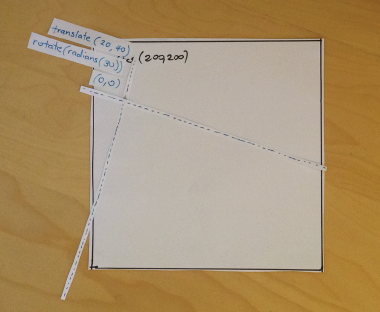 translate (20, 40)
rotate(radians(30))
(200,200)
(0,0)